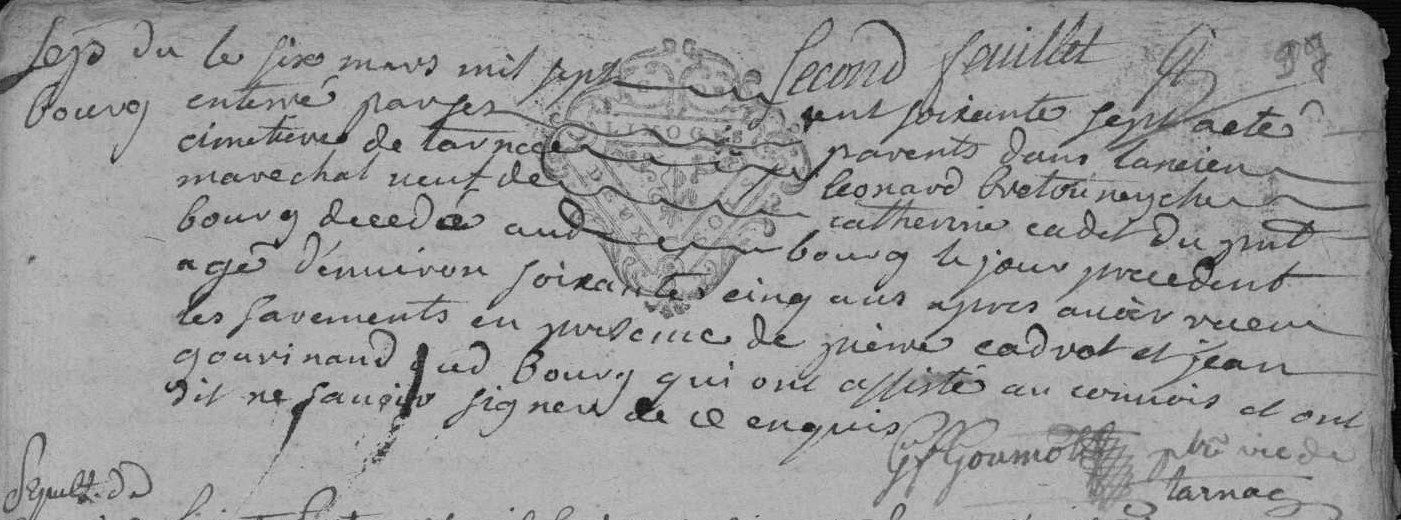 Second feuillet
Sep du
bourg
le six mars mil sept cent soixante sept a eté
enterré par ses parents dans lancien
cimetiere de tarnac leonard bretouneyche
marechal veuf de catherine cadet du pnt
bourg decedé aud bourg le jour precedent
agé d'environ soixante cinq ans apres avoir recu
les sacrements en presence de pierre cadrot et jean
gourinaud dud bourg qui ont assisté au convois et ont
dit ne savoir signer de ce enquis
ptre vic de
tarnac
Sepult. de
LIMOGES